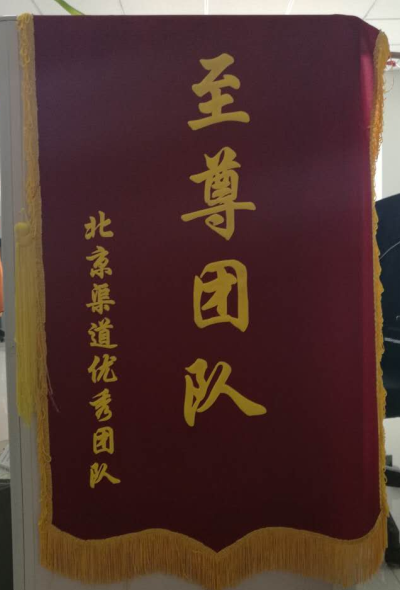 至尊团队
北京渠道优秀团队